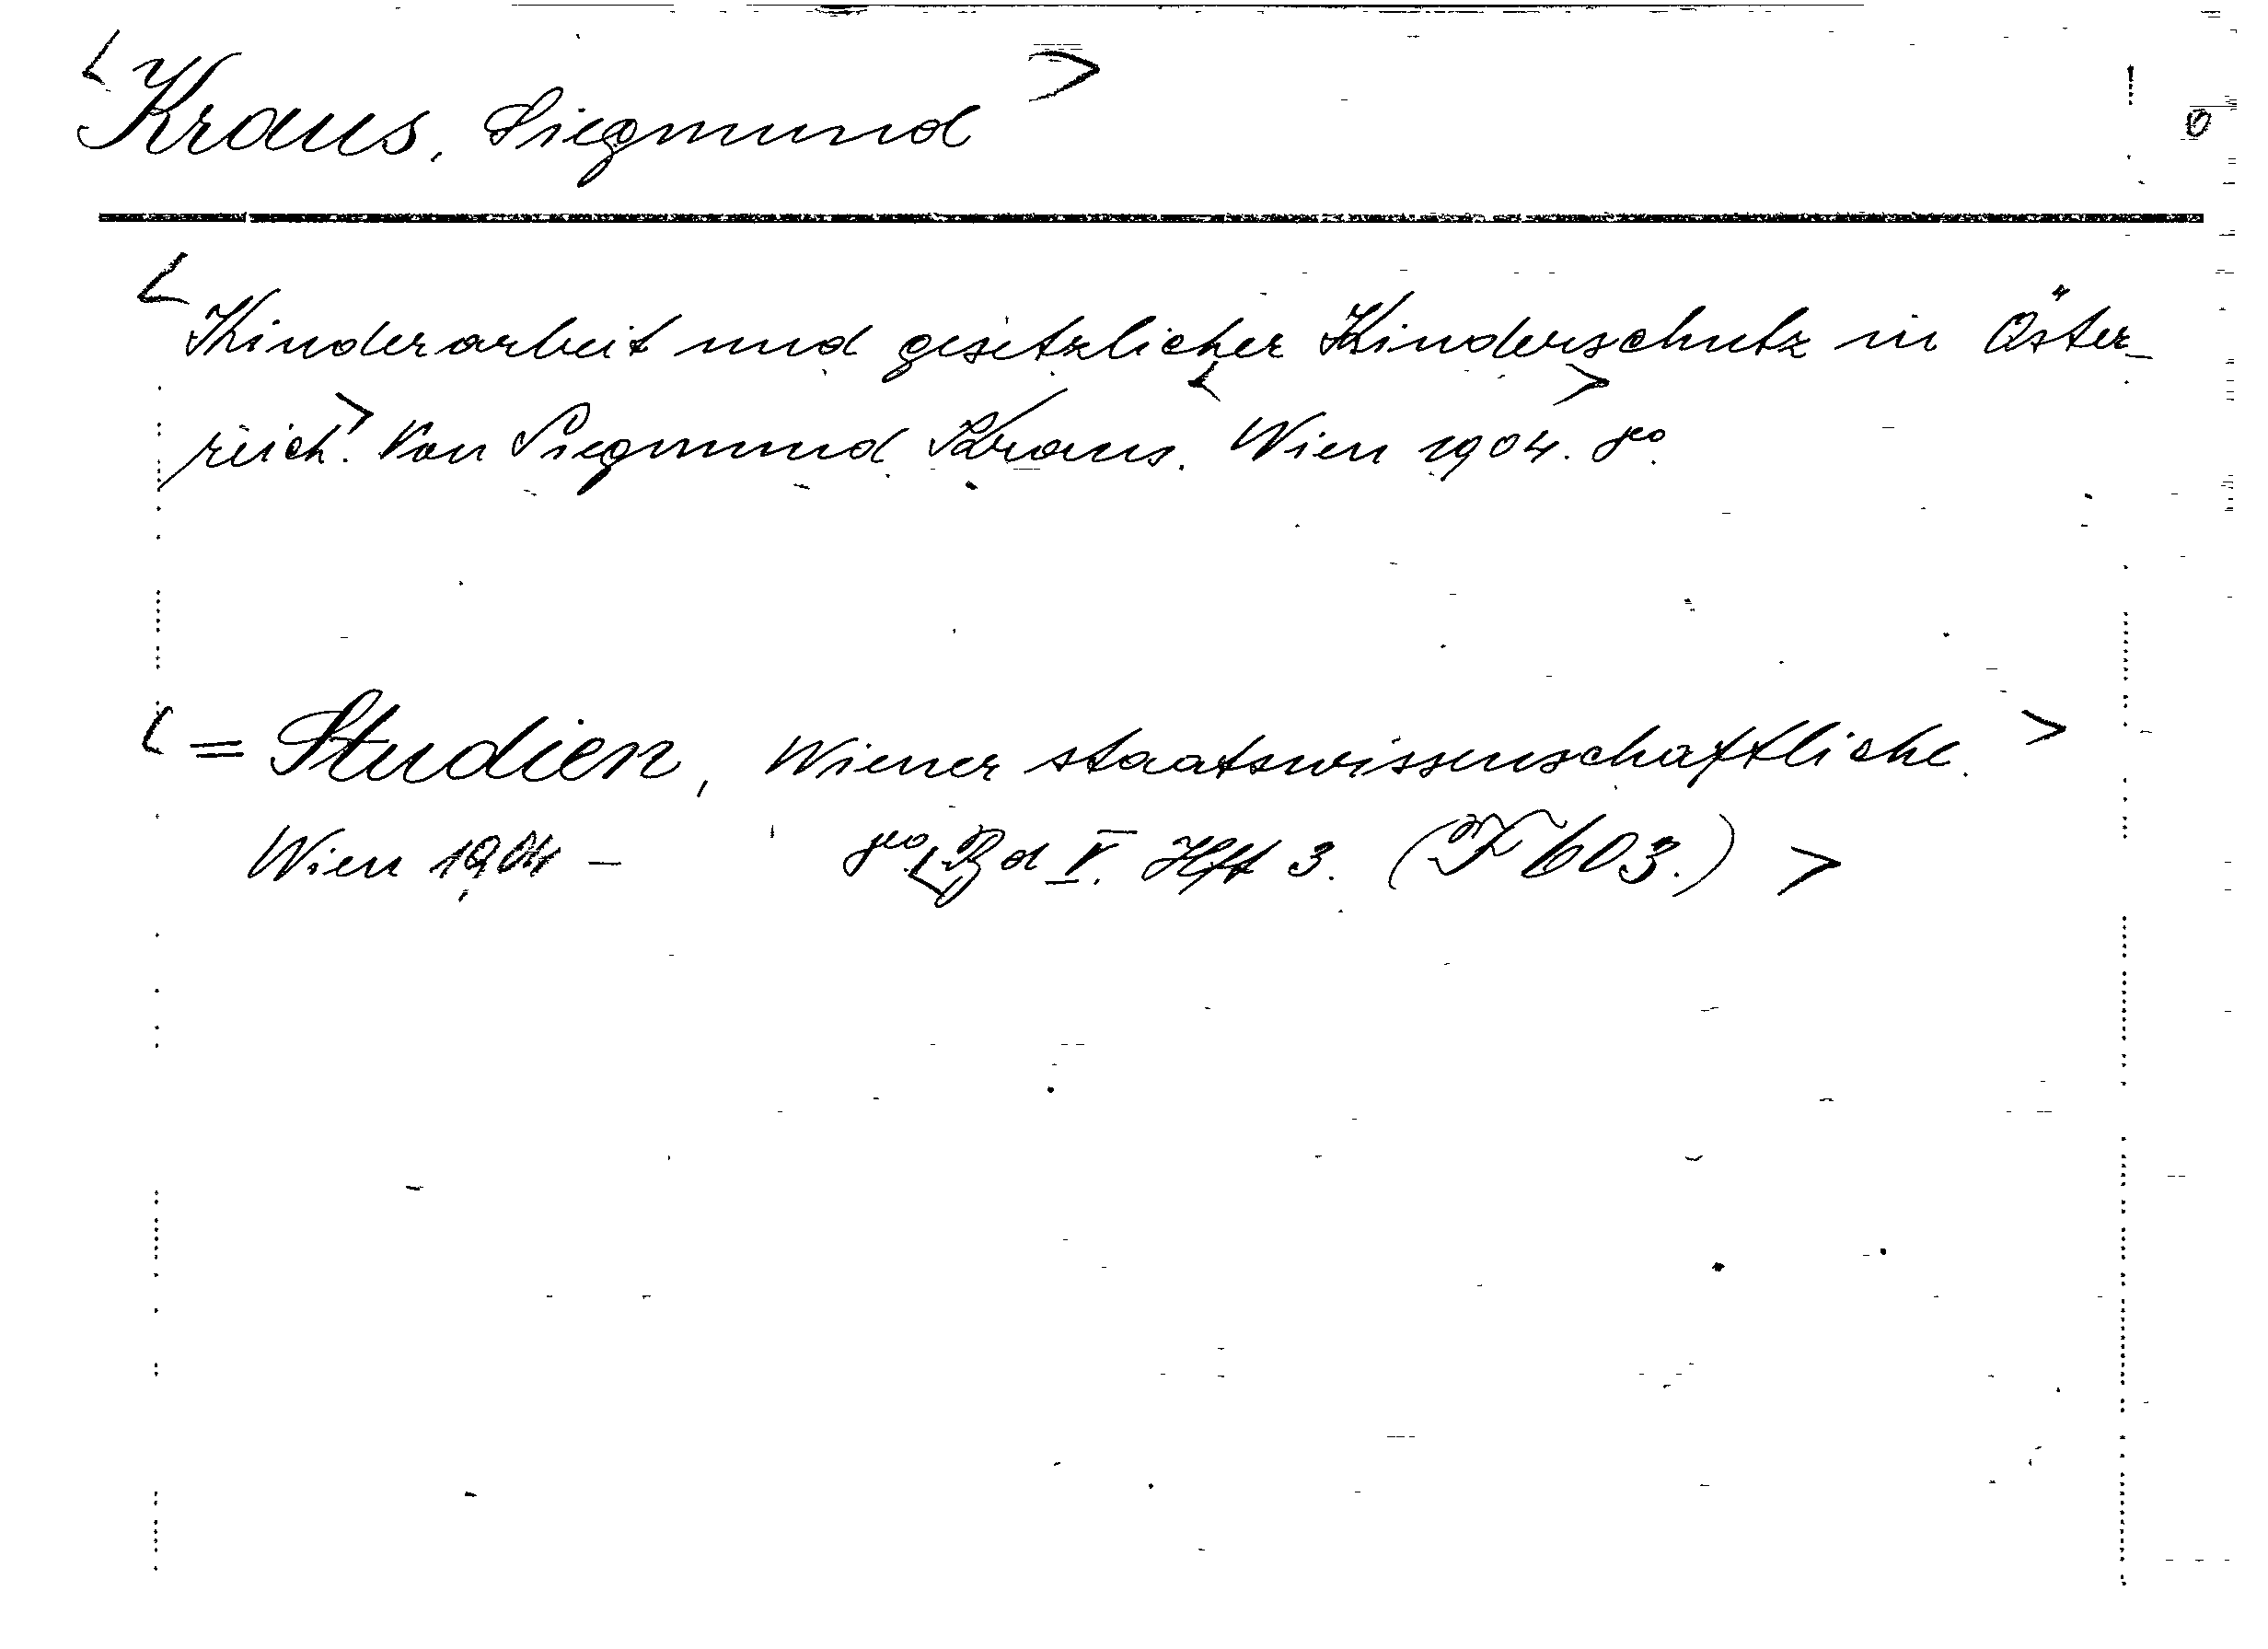 <Kraus, Siegmund>
0
<Kinderarbeit und gesetzlicher Kinderschutz in Öster-
reich>. Von Siegmund Kraus. <Wien 1904.> 8o.
<= Studien, Wiener staatswissenschaftliche.>
Wien 1904 - 8o. <Bd V. Hft 3. (F 603.)>